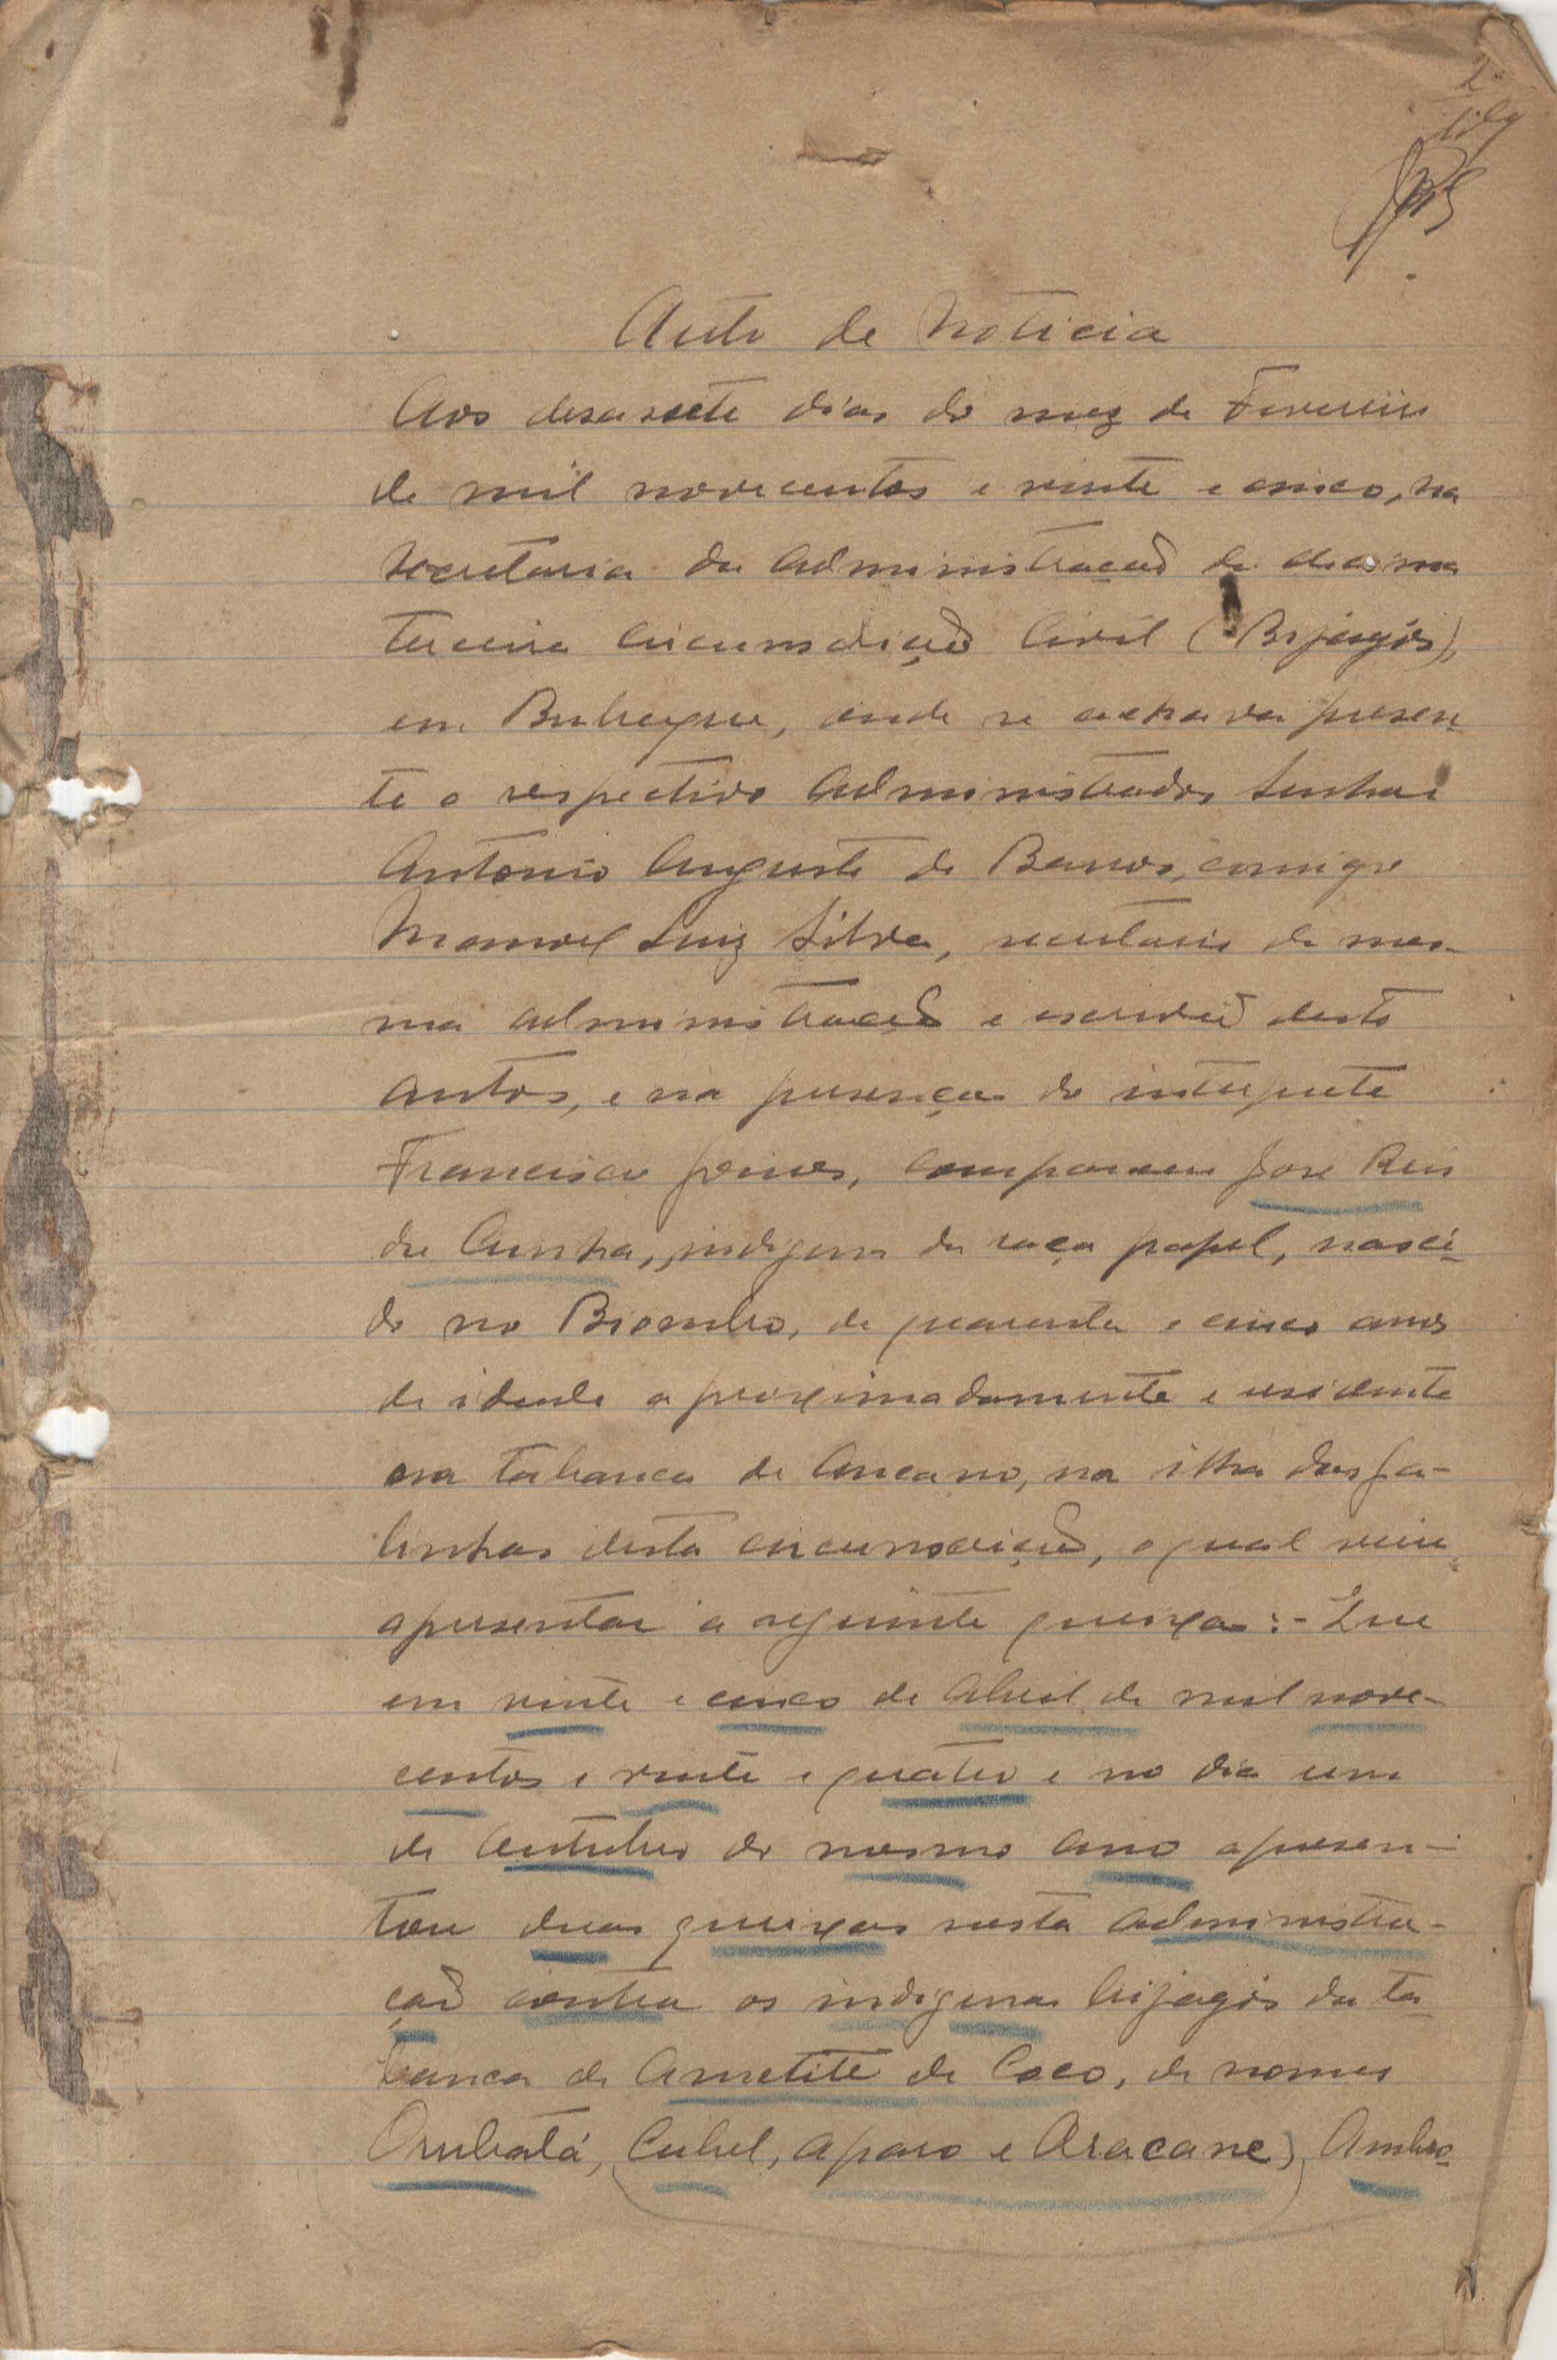 2
Auto de Noticia
Aos desasete dias do mez de Fevereiro
de mil novecentos e vinte e cinco, na
Secretaria da Administração da decima
terceira circunscrição Civil (Bijagós),
em Bubaque, onde se achava presen
te o respectivo Administrador Senhor
Antonio Augusto de Barros, comigo
Manoel Luiz Silva, secretario da mes-
ma administração e escrivão destes
autos, e na presença do interprete
Francisco, compareceu José Reis
da Cunha, indigena da raça papel, nasci-
do no Biombo, de quarenta e cinco anos
de idade aproximadamente e residente
na tabanca de Ancano, na ilha das ga-
linhas desta circunscrição, o qual veiu
apresentar a seguinte queixa:- Que
em vinte e cinco de Abril de mil nove-
centos e vinte e quatro e no dia um
de Outubro do mesmo ano apresen-
tou duas queixas nesta Administra-
ção contra os indigenas bijagós da ta
banca de Ametite de Coco, de nomes
Orubatá, (Cubel, Aparo e Aracane), Ambro